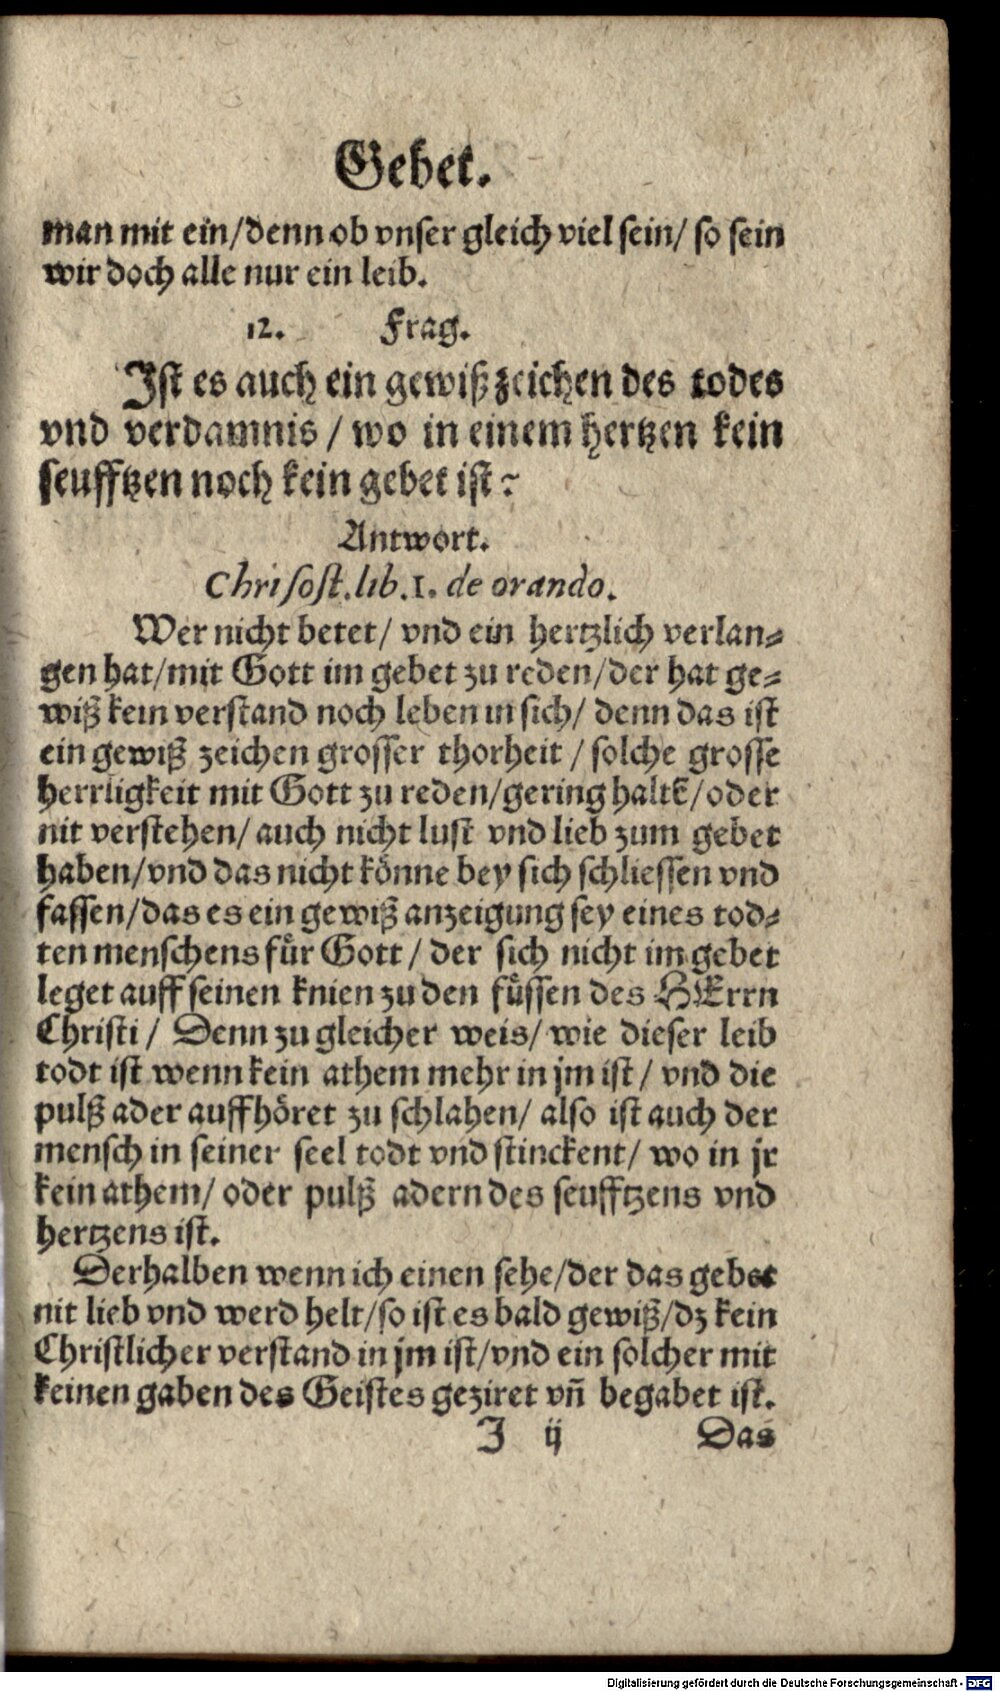 Gebet.
man mit ein/denn ob vnser gleich viel sein/ so sein
wir doch alle nur ein leib.
12. Frag.
Ist es auch ein gewiß zeichen des todes
vnd verdamnis / wo in einem hertzen kein
seufftzen noch kein gebet ist?
Antwort.
Chrisost. lib. 1. de orando.
Wer nicht betet/ vnd ein hertzlich verlan-
gen hat/mit Gott im gebet zu reden/der hat ge-
wiß kein verstand noch leben in sich/ denn das ist
ein gewiß zeichen grosser thorheit / solche grosse
herrligkeit mit Gott zu reden/gering haltẽ/oder
nit verstehen/ auch nicht lust vnd lieb zum gebet
haben/vnd das nicht koͤnne bey sich schliessen vnd
fassen/das es ein gewiß anzeigung sey eines tod-
ten menschens fuͤr Gott / der sich nicht im gebet
leget auff seinen knien zu den fuͤssen des HErrn
Christi / Denn zu gleicher weis/ wie dieser leib
todt ist wenn kein athem mehr in jm ist / vnd die
pulß ader auffhoͤret zu schlahen/ also ist auch der
mensch in seiner seel todt vnd stinckent/ wo in jr
kein athem/ oder pulß adern des seufftzens vnd
hertzens ist.
Derhalben wenn ich einen sehe/der das gebet
nit lieb vnd werd helt/so ist es bald gewiß/dz kein
Christlicher verstand in jm ist/vnd ein solcher mit
keinen gaben des Geistes geziret vñ begabet ist.
J ij Das
Digitalisierung gefördert durch die Deutsche Forschungsgemeinschaft - DFG